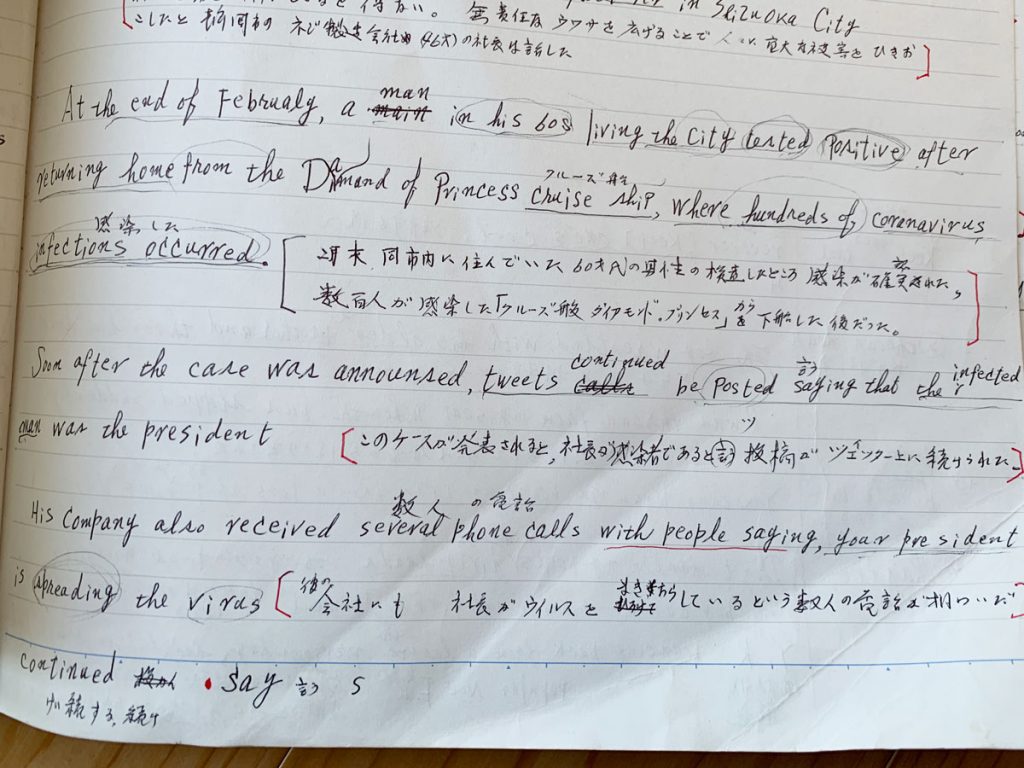 in Shizuoka City
こしたと静岡市の ネジ製造会社の (46才)の社長は話した
At the end of Februaly, a man in his 60s living the city tested positive after
returning home from the Diamand of Princess cruise ship, where hundreds of coronavirus
クルーズ船
感染した
infections occurred.
月末、同市内に住んでいた60才代の男性の検査したところ感染が確認された、
数百人が感染した「クルーズ船 ダイアモンド・プリンセス」から下船した後だった。
Soon after the case was announsed, tweets continued be posted saying that the infected
言う
man was the president
このケースが発表されると、社長が感染者であると言う 投稿が ツイッター上に続けられた
数人 の電話
His company also received several phone calls with people saying, your president
is spreading the virus
彼の会社にも 社長がウイルスをまきちらしているという数人の電話が相ついだ
continued ・say 言う s
継続する、続け